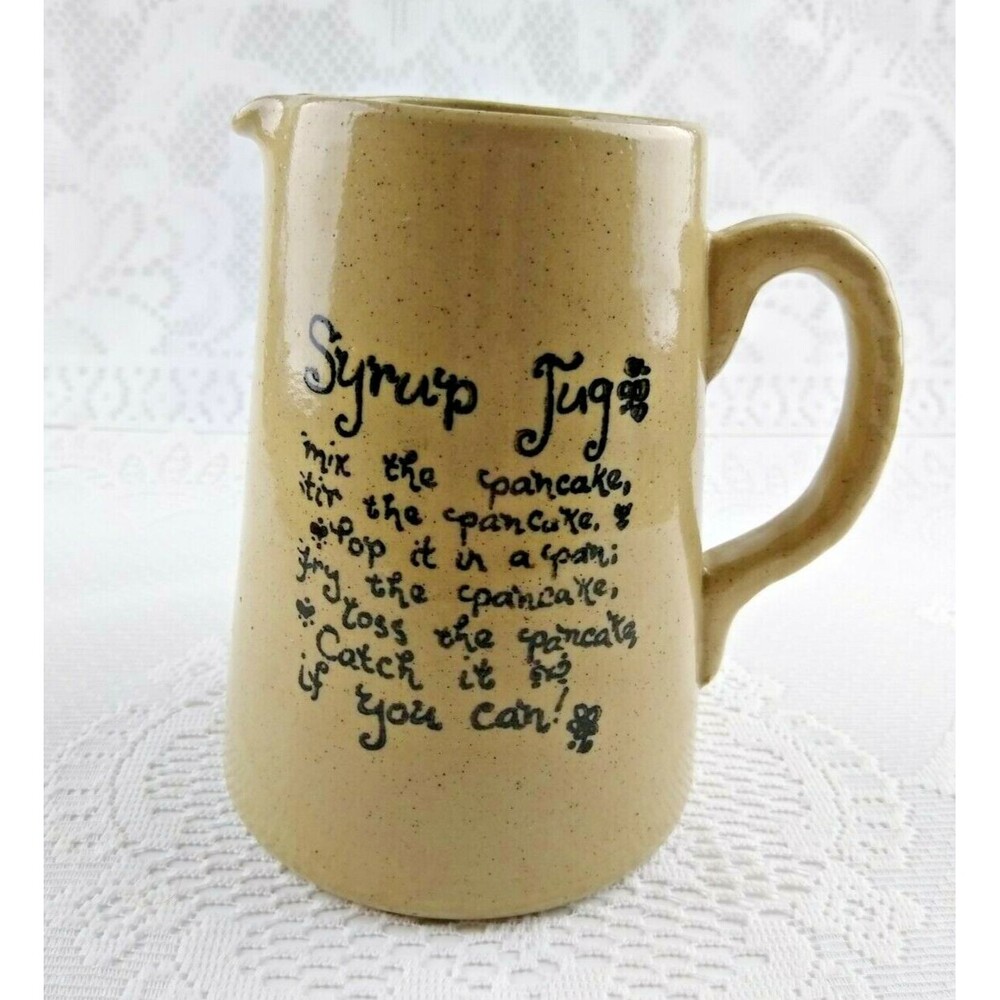 Syrup Jug
mix the pancake,
stir the pancake.
Pop it in a pan;
fry the pancake,
toss the pancake,
Catch it
if you can!